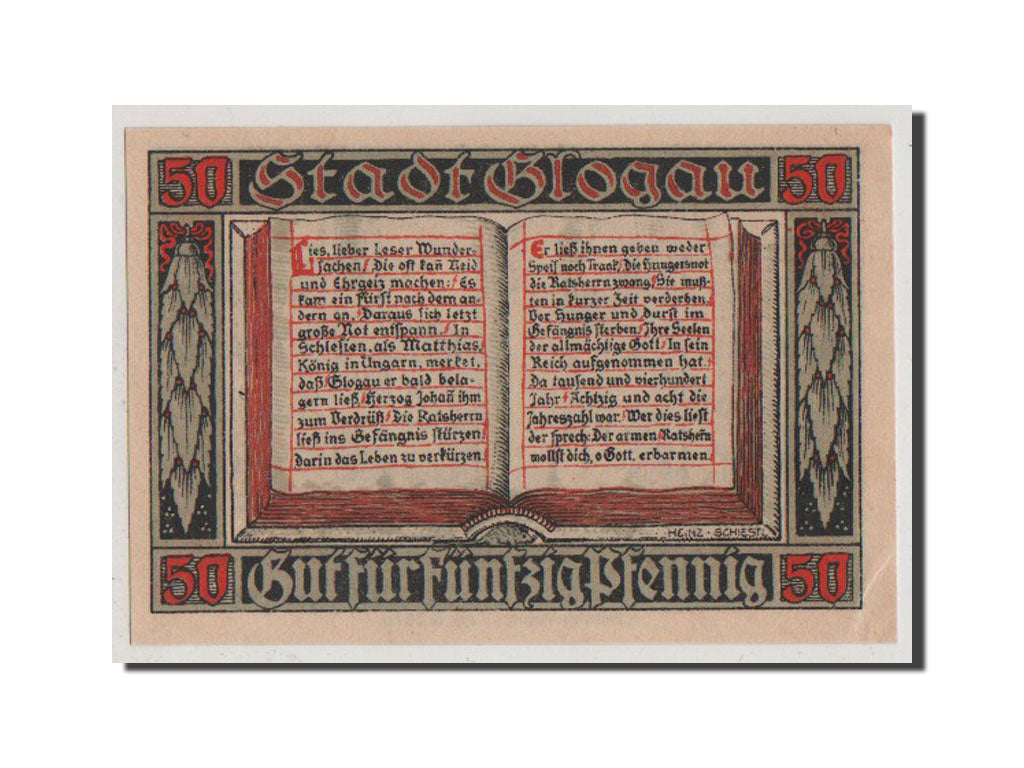 50 Stadt Glogau 50
Lies, lieber Leser Wunder-
sachen/ Die oft kañ Neid
und Ehrgeiz machen:/ Es
kam ein Fürst nach dem an-
dern an./ Daraus sich letzt
große Not entspann./ In
Schlesien, als Matthias,
König in Ungarn, merket,
daß/ Glogau er bald bela-
gern ließ/ Herzog Johañ ihm
zum Verdrüß/ Die Ratsherrn
ließ ins Gefängnis stürzen/
Darin das Leben zu verkürzen.
Er ließ ihnen geben weder
Speis noch Trank/ Die Hungersnot
die Ratsherrn zwang/ Sie muß-
ten in kurzer Zeit verderben.
Vor Hunger und Durst im
Gefängnis sterben/ Ihre Seelen
der allmächtige Gott/ In sein
Reich aufgenommen hat./
Da tausend und vierhundert
Jahr/ Achtzig und acht die
Jahreszahl war./ Wer dies liest
der sprech: Der armen/ Ratsherrn
wollst dich, o Gott, erbarmen.
HEINZ · SCHIESTL
50 Gut für Fünfzig Pfennig 50